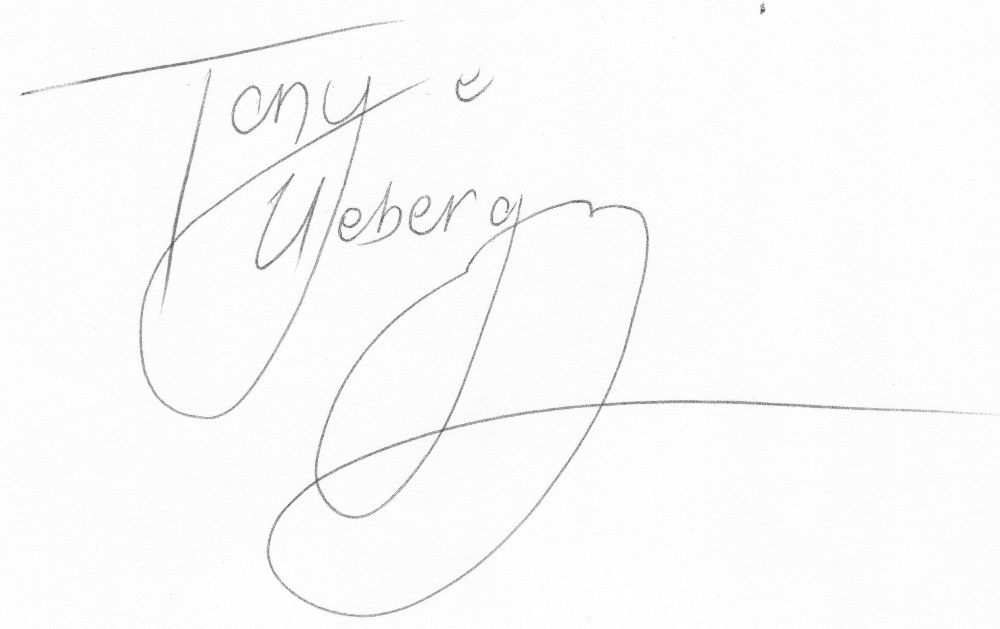 Tony e
Ueberg